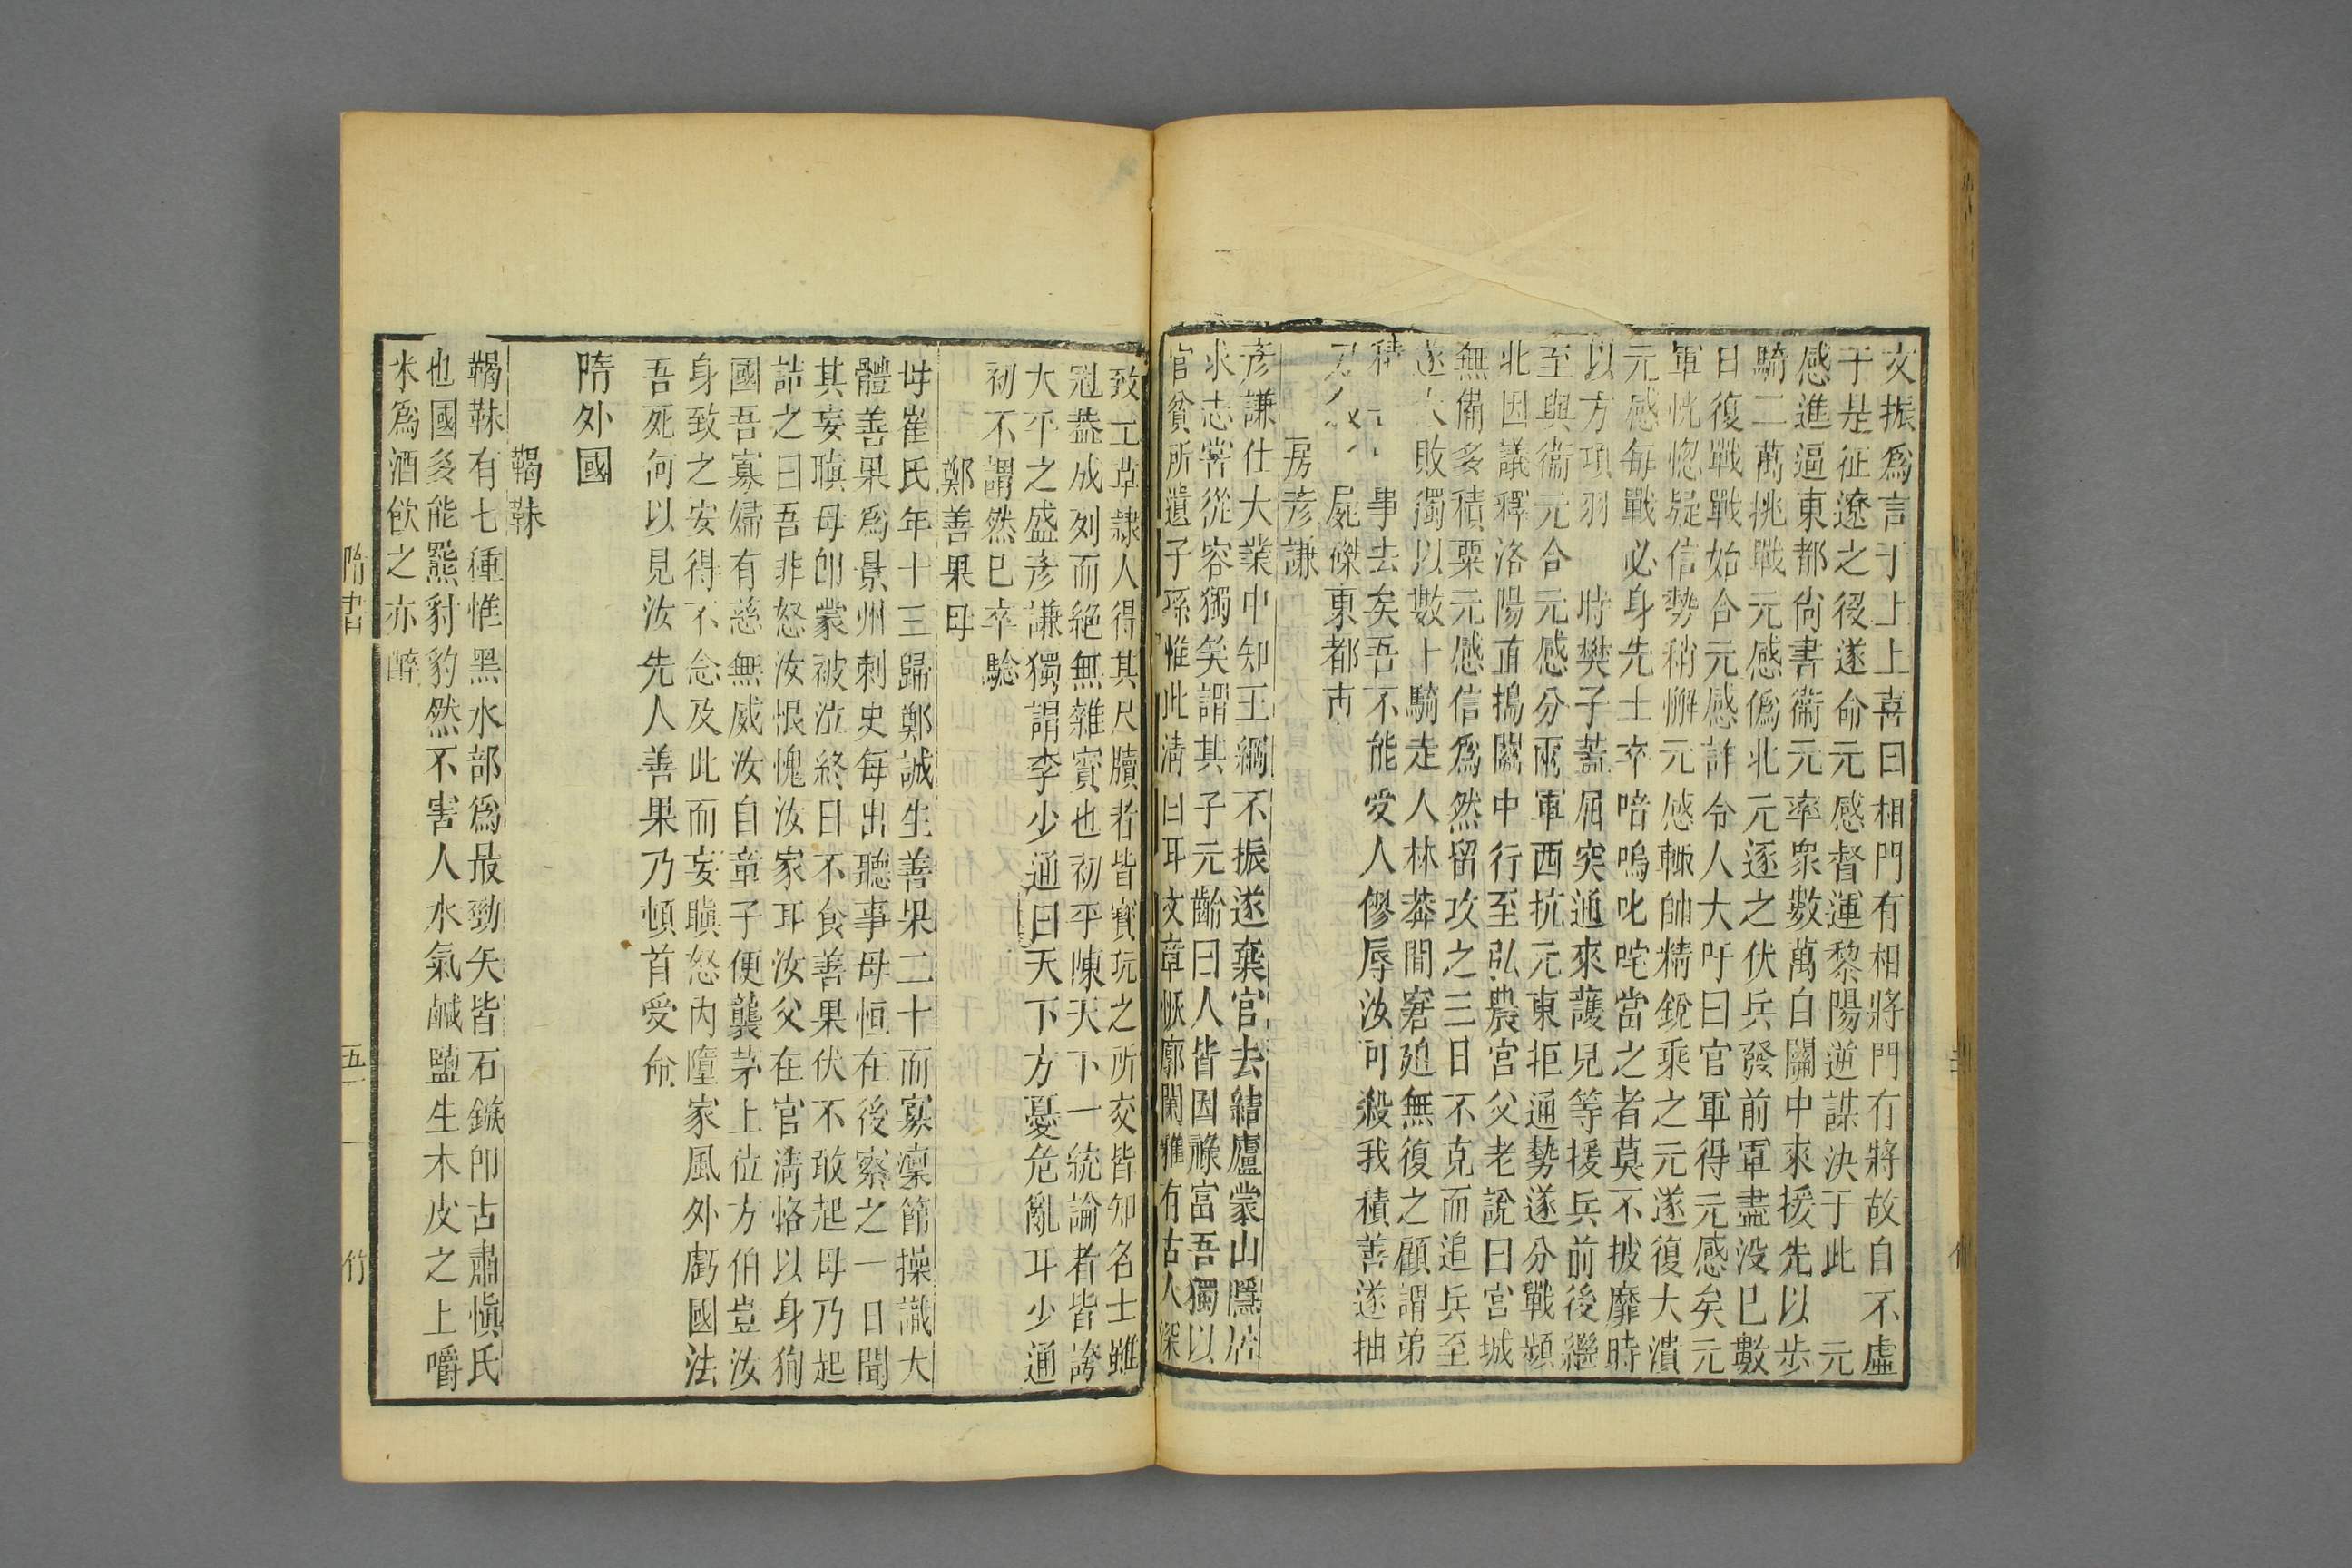 文振爲言于上上喜曰相門有相將門有將故自不虛
于是征遼之役遂命元感督運黎陽逆謀決于此　元
感進逼東都尚書衞元率衆數萬自關中來援先以步
騎二萬挑戰元感僞北元逐之伏兵發前軍盡没已數
日復戰戰始合元感詐令人大呼曰官軍得元感矣元
軍恍惚疑信勢稍懈元感輙帥精銳乘之元遂復大潰
元感每戰必身先士卒喑嗚叱咤當之者莫不披靡時
以方項羽　時樊子蓋屈突通來護兒等援兵前後繼
至與衞元合元感分兩軍西抗元東拒通勢遂分戰頻
北因議釋洛陽直搗關中行至弘農宮父老說曰宮城
無備多積粟元感信爲然留攻之三日不克而追兵至
遂大敗獨以數十騎走人林莽間窘廹無復之顧謂弟
積　事去矣吾不能受人僇辱汝可殺我積善遂抽
屍磔東都市
房彥謙
彥謙仕大業中知王綱不振遂棄官去結廬蒙山隱居
求志嘗從容獨笑謂其子元齡曰人皆因祿富吾獨以
官貧所遺子孫惟此淸白耳文章恢廓閑雅有古人深
致工草隷人得其尺牘者皆寶玩之所交皆知名士雖
冠蓋成列而絕無雜賓也初平陳天下一統論者皆誇
大平之盛彥謙獨謂李少通曰天下方憂危亂耳少通
初不謂然已卒驗
鄭善果母
母崔氏年十三歸鄭誠生善果二十而寡凜節操識大
體善果爲景州刺史每出聽事母恒在後察之一日聞
其妄瞋母卽蒙被泣終日不食善果伏不敢起母乃起
詰之曰吾非怒汝恨愧汝家耳汝父在官淸恪以身狥
國吾寡婦有慈無威汝自童子便襲茅土位方伯豈汝
身致之安得不念及此而妄瞋怒内墮家風外虧國法
吾死何以見汝先人善果乃頓首受命
隋外國
靺鞨
靺鞨有七種惟黑水部爲最勁矢皆石鏃卽古肅愼氏
也國多能羆豺豹然不害人水氣鹹鹽生木皮之上嚼
米爲酒飲之亦醉
隋書
五一
竹